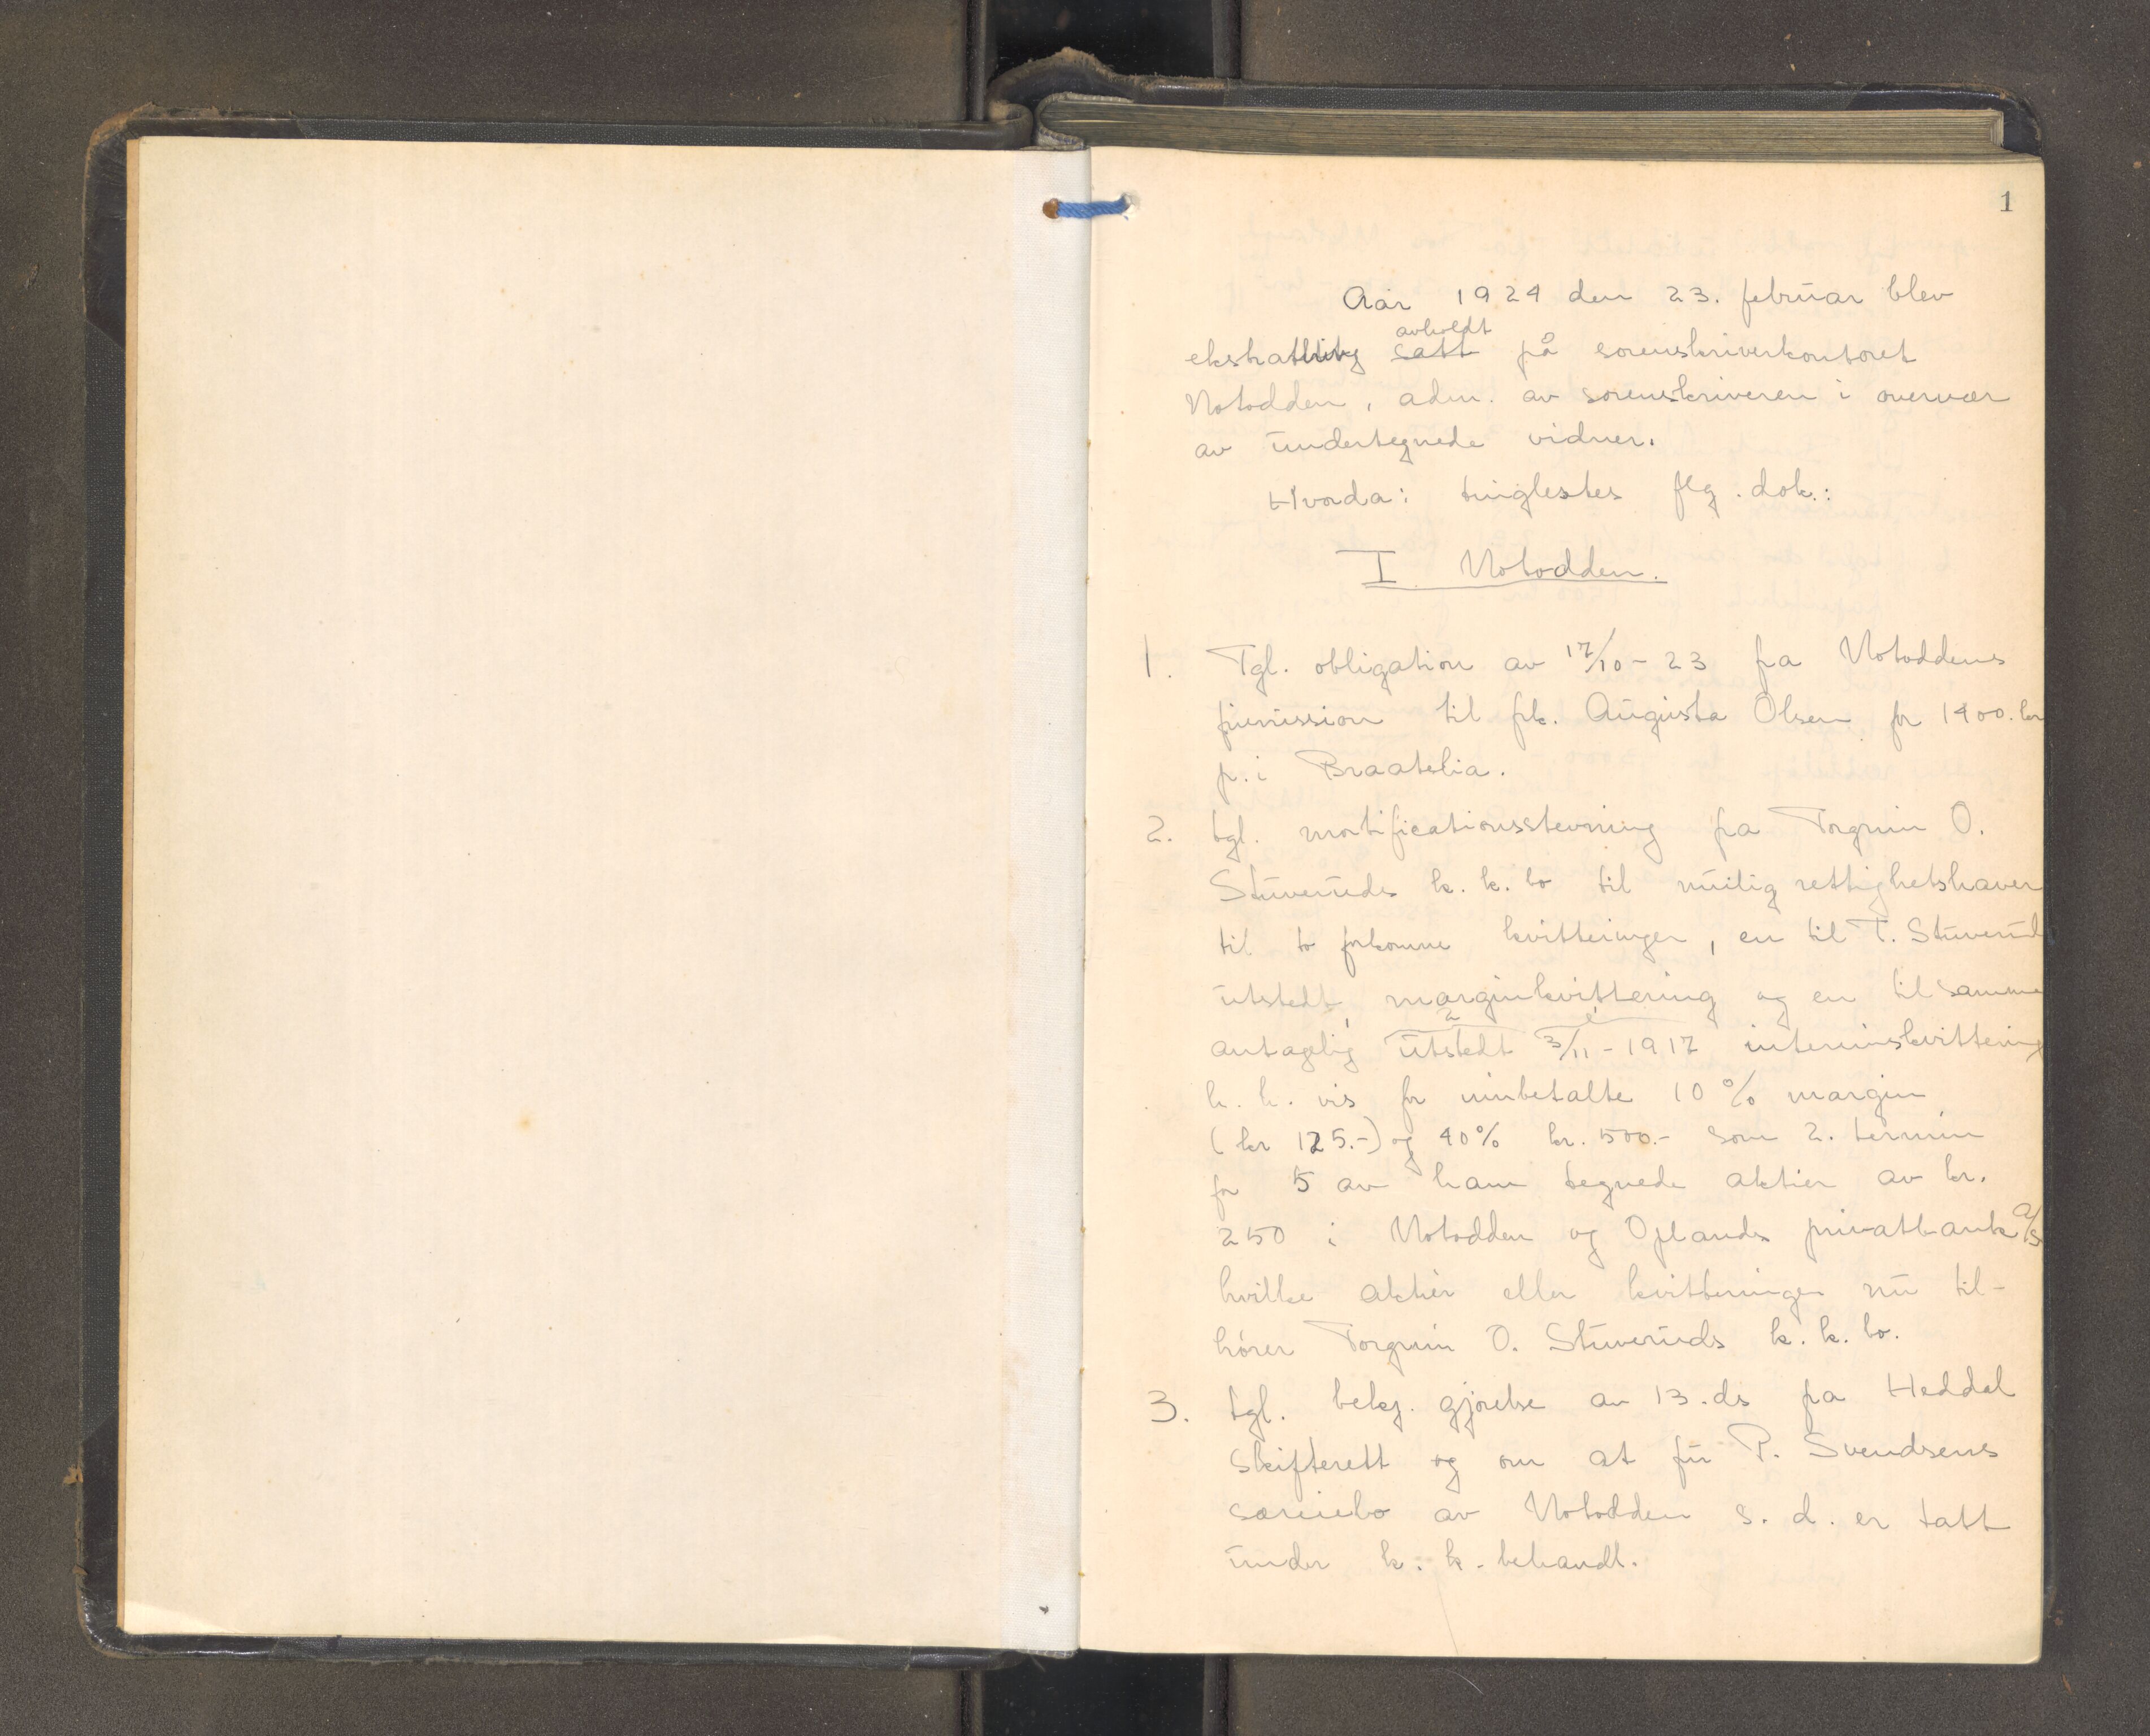 1
Aar 1924 den 23. februar blev
avholdt
ekstratting satt på sorenskriverkontoret
Notodden, adm. av sorenskriveren i overvær
av undertegnede vidner.
Hvorda: tinglestes flg. dok.:
I Notodden.
1. Tgl. obligation av 17/10-23 fra Notoddens
finmission til frk. Augusta Olsen for 1400.kr
p. i Braatelia.
2. tgl. mortificationsstevning fra Torgrim O.
Stuveruds k. k. bo til mulig rettighetshaver
til to forkomne kvitteringer, en til T. Stuverud
utstedt marginkvittering og en til samme
2 1
antagelig utstedt 3/11-1917 interimskvittering
h. h. vis for innbetalte 10% margin
(kr 125.-) og 40% kr. 500.- som 2. termin
for 5 av ham tegnede aktier av kr.
250 i Notodden og Oplands privatbank a/s
hvilke aktier eller kvitteringer nu til-
hører Torgrim O. Stuveruds k. k. bo.
3. tgl. bekj. gjørelse av 13. ds fra Heddal
skifterett og om at fru P. Svendsens
særeiebo av Notodden s. d. er tatt
under k. k. behandl.